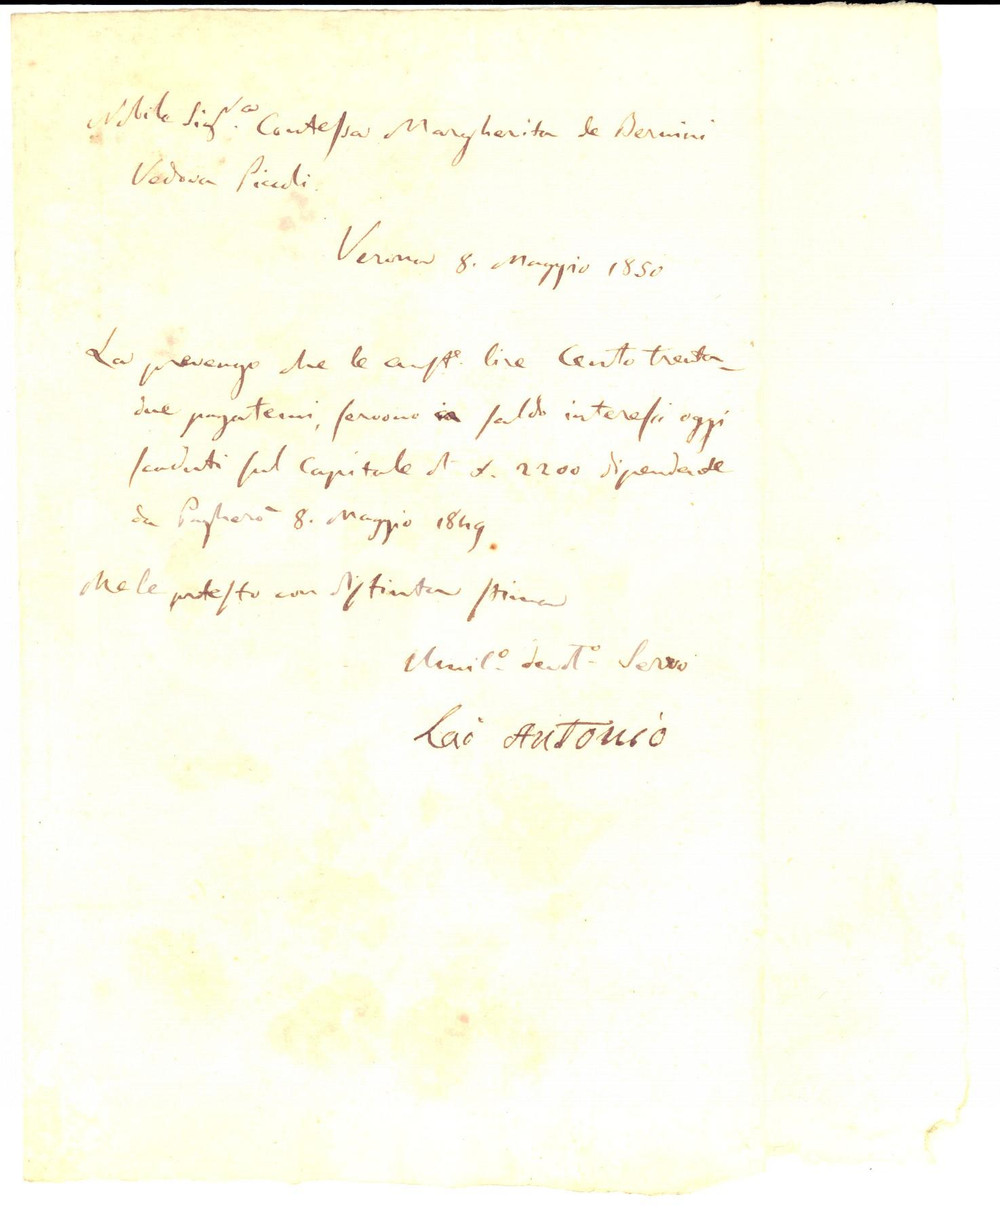 Nobile Sig.ra Contessa Margherita de Bernini
Vedova
Verona 8. Maggio 1850
La prevengo che le aust.e lire Cento trenta
due pagatemi, servono in saldo interessi oggi
scaduti sul Capitale di £. 2200 dipendente
da Pagherò 8. Maggio 1849
Me le protesto con distinta stima
Umil.o devot.o Servo
Antonio